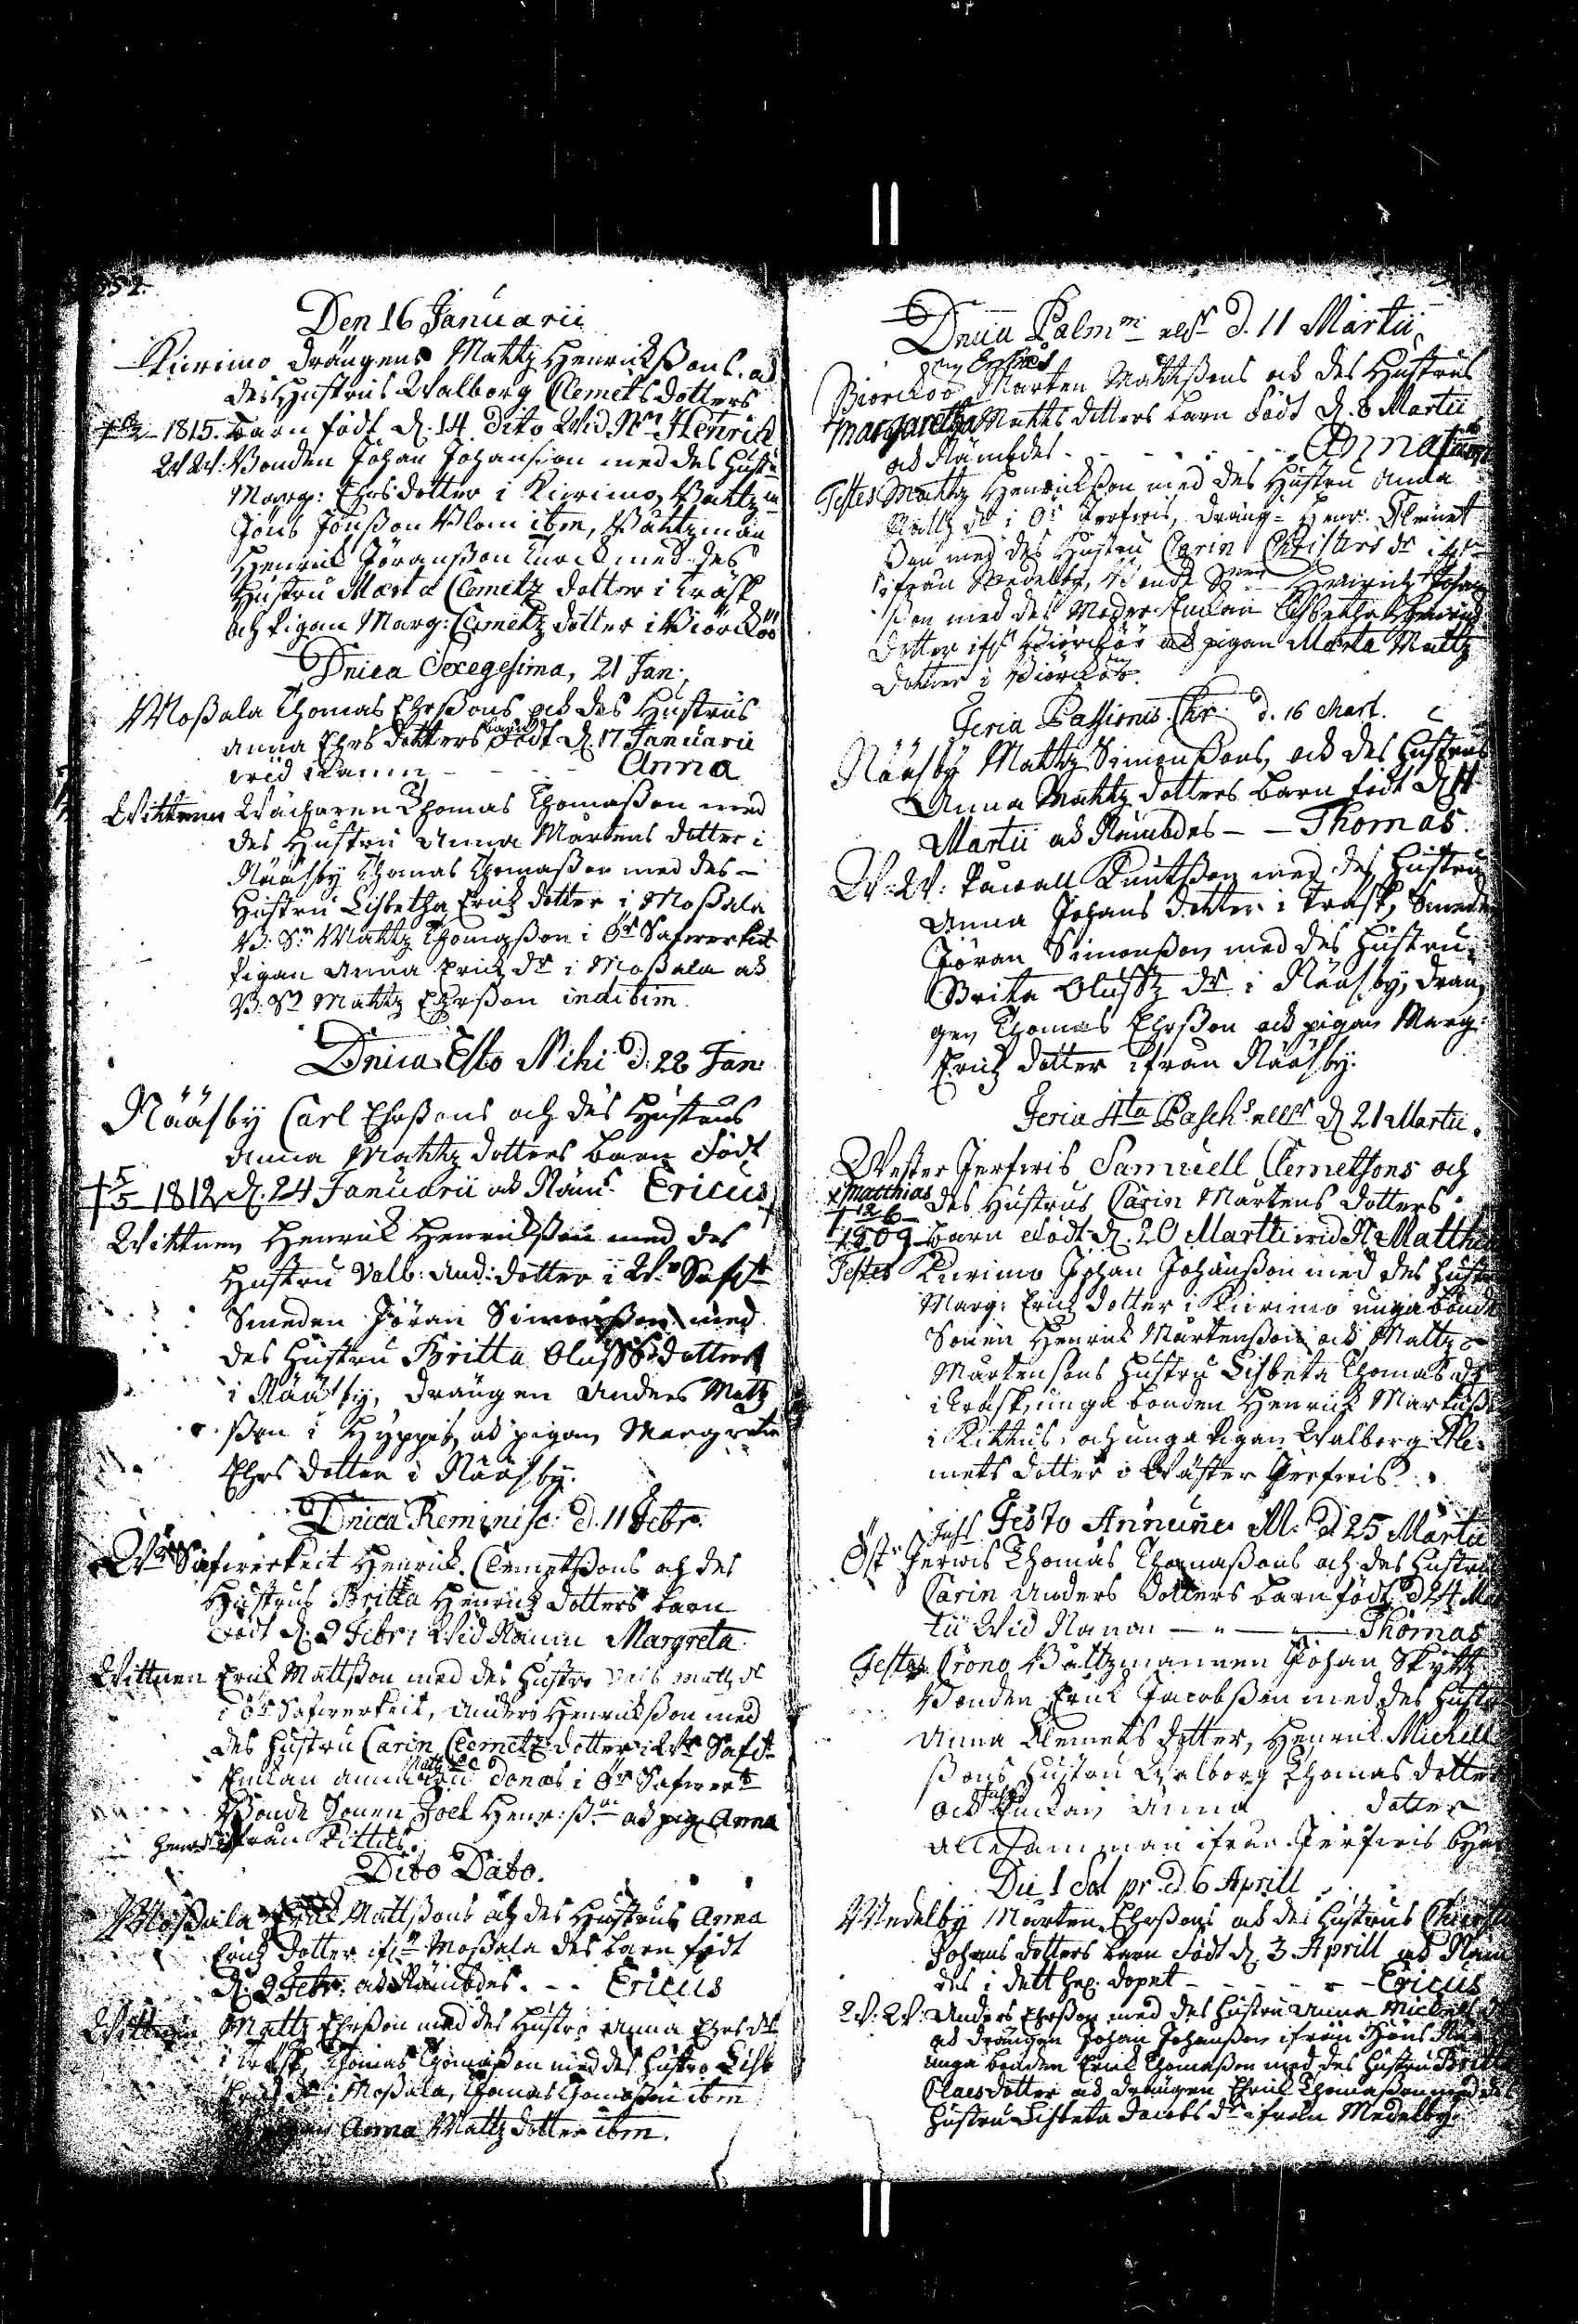 Den 16 Januarii
Kiurimo drängens Mattz Henrichßons. och
des Hustrus Walborg Clemetsdotters
1815. barn födt d. 14 Dito Wid Nn. Henrich
W W: Bonden Johan Johansson med des Hustru
Marg: Ehrsdotter i Kiurimo, Båtzm
Jöns Jönßon Blom ibm, Båtzman
Henrich Jöranßon med des
Hustru Marta Clemetz dotter i Träsk
och Pigan Marg: Clemetz dotter i Biörcköö
Dnica Sexegesima, 21 Jan:
Moßala Thomas Ehrßons och des Hustrus
Anna Ehrs dotters barn födt d. 17 Januarii
wid Namn - - - Anna
Wittnen Thomas Thomaßon med
des Hustru Anna Mårtens dotter i
Nääsby Thomas Thomaßon med des -
Hustru Lisbetha Erichz dotter i Moßala
B. Sn Mattz Thomaßon i Ör Safwerkeit
Pigan Anna Erichz dr i Moßala och
B. Sn Mattz Ehrßon indibim.
Dnica Esto Mihi d. 28 Jan:
Nääsby Carl Ehrßons och des Hustrus
Anna Mattz dotters barn Födt
† 5/5 1812 d. 24 Januarii och Näms Ericus
Wittnen Henrich Henrichßon med des
Hustru Valb: And: dotter i W.r Saf
Smeden Jöran Simonßon med
des Hustru Britta Olufs dotter
i Nääsby, drängen Anders Matz
ßon i Hyppis och pigan Margreta
Ehrs dotter i Nääsby.
Dnica Reminisc: d. 11 Febr.
Wr Safwerkeit Henrich Clemetßons och des
Hustrus Britta Henrichz dotters barn
Födt d. 9 Febr: Wid Namn Margreta
Wittnen Erich Mattßon med des Hustru Mattz dr
i Ör Safwerkeit, Anders Henrichßon med
des Hustru Carin Clemetz dotter i Wr Saf
Enkian Anna i Ör Safwerk
Bonde Sonen Joel Henr: ßon och pig Anna
Henr ifrån Kittus.
Dito Dato.
Moßala Erich Mattßons och des Hustrus Anna
Erichz dotter ifrn Moßala des barn födt
d. 9 Febr: och Nämbdes. - - Ericus
Wittnen Mattz Ehrßon med des Hustru Anna Ehrs dr
i Träsk, Thomas Thomaßon med des Hustru Lisb
Erichz dr i Moßala, Thomas Thomaßon ibm
Anna Mattz dotter ibm.
Dnica Palmm d. 11 Martii
Biorcköö Mårten Mattßons och des Hustrus
Margaretha Matts dotters barn födt d. 8 Martii
och Nämbdes - - - - Anna
Testes Mattz Henrichßon med des Hustru Anna
Mattz dr i Ör Jerfwis, dräng Henr: Clemet
ßon med des Hustru Carin Christers dr
ifrån Medelby, Bonde Henrich Johan
ßon med des Moder Enkian Lisbetha Henrich
dotter Biorcköö och pigan Marta Mattz
dotter i Biörcköö.
Feria Passionis Chr: d. 16 Mart.
Nääsby Mattz Simonßons, och des Hustrus
Anna Mattz dotters barn födt d. 14
Martii och Nämbdes - - Thomas.
W. W: Påwall Knutßon med des Hustru
Anna Johans dotter i Träsk, Smeden
Jöran Simonßon med des Hustru
Brita Olufs dr i Nääsby, drän
gen Thomas Ehrßon och pigan Marg:
Erichz dotter ifrån Nääsby.
Feria 4ta Pasch d. 21 Martii.
Wester Jerfwis Samuell Clemetsons och
Matthias des Hustrus Carin Mårtens dotters
1809 barn Födt d. 20 Martii wid N Matthias
Testes Kiurimo Johan Johanßon med des Hustru
Marg: Erichz dotter i Kiurimo unga bonde
Sonen Henrich Mårtenßon och Mattz
Mårtensons Hustru Lisbeta Thomas dr
i Träsk, unga bonden Henrich Markusßon
i Kittus, och unga Pigan Walborg Cle
mets dotter i Wäster Jerfwis.
Festo Annunc: M: d 25 Martii
Östr Jerwis Thomas Thomaßons och des Hustrus
Carin Anders dotters barn födt d 24 Mar
tii Wid Namn - - - Thomas
Testes Crono Båttzmannen Johan Skytt
Bonden Erich Jacobßon med des Hustru
Anna Clemets dotter, Henrich Michell
ßons Hustru Walborg Thomas dotter
och Enckan Anna dotter
Allesamman ifrån Jerfwis by
Die 1 Sol pr. d. 6 Aprill
Medelby Mårten Ehrßons och des Hustrus
Johans dotters barn Födt d. 3 Aprill och Näm
des i dett dopet - - - - Ericus
W. W. Anders Ehrßon med des Hustru Anna Michels
och drängen Johan Johanßon ifrån
unga bonden Erich Thomaßon med des Hustru Britta
Claesdotter och drängen Ehrich Thomaßon med des
Hustru Lisbeta Jacobs dr ifrån Medelby.